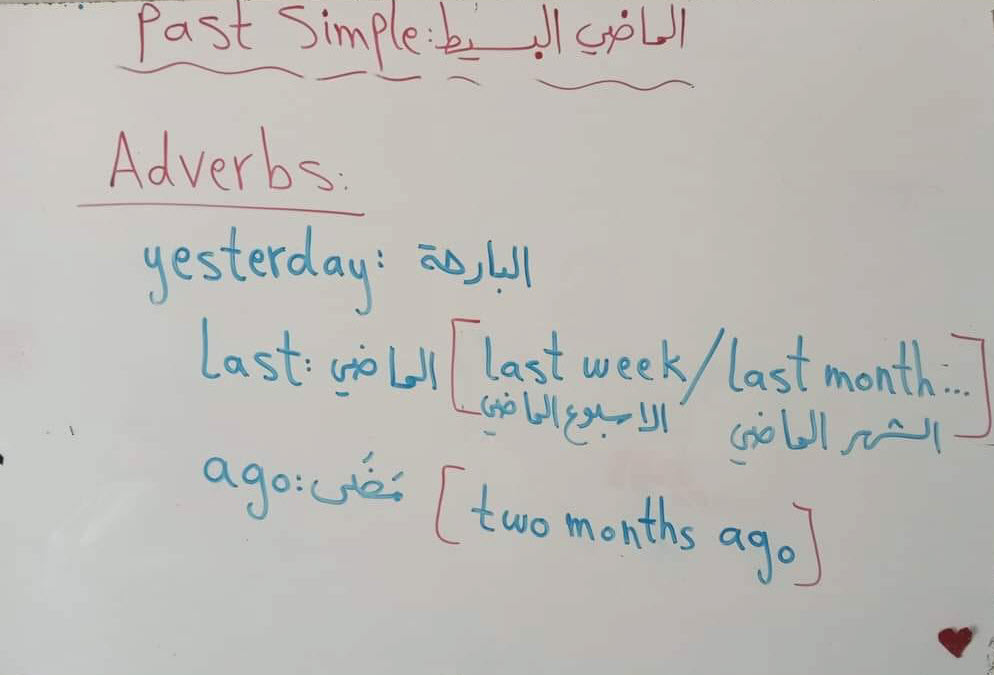 Past Simple: الماضي البسيط
Adverbs:
yesterday: البارحة
Last: الماضي [last week/last month...]
الاسبوع الماضي الشهر الماضي
ago: مَضَى [two months ago]